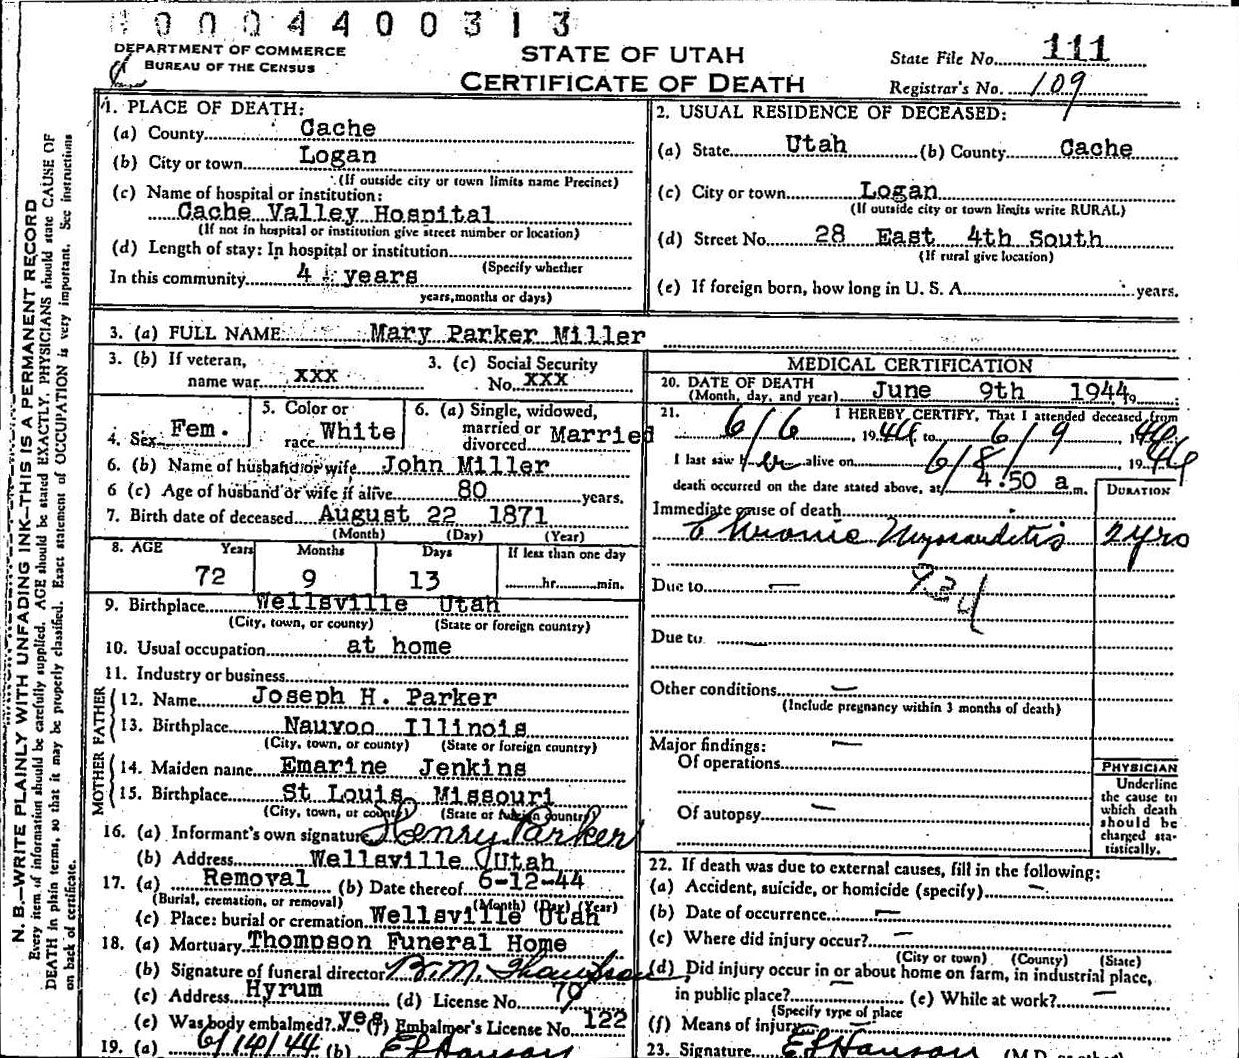 0004400313
DEPARTMENT OF COMMERCE
BUREAU OF THE CENSUS
STATE OF UTAH
CERTIFICATE OF DEATH
State File No. 111
Registrar's No. 109
N. B.—WRITE PLAINLY WITH UNFADING INK—THIS IS A PERMANENT RECORD
Every item of information should be carefully supplied. AGE should be stated EXACTLY. PHYSICIANS should state CAUSE OF
DEATH in plain terms, so that it may be properly classified. Exact statement of OCCUPATION is very important. See instructions
on back of certificate.
1. PLACE OF DEATH:
(a) County Cache
(b) City or town Logan
(If outside city or town limits name Precinct)
(c) Name of hospital or institution:
Cache Valley Hospital
(If not in hospital or institution give street number or location)
(d) Length of stay: In hospital or institution
(Specify whether
In this community 4 years
years, months or days)
2. USUAL RESIDENCE OF DECEASED:
(a) State Utah (b) County Cache
(c) City or town Logan
(If outside city or town limits write RURAL)
(d) Street No. 28 East 4th South
(If rural give location)
(e) If foreign born, how long in U. S. A. years.
3. (a) FULL NAME Mary Parker Miller
3. (b) If veteran,
name war xxx
3. (c) Social Security
No. xxx
4. Sex Fem.
5. Color or
race White
6. (a) Single, widowed,
married or
divorced Married
6. (b) Name of husband or wife John Miller
6 (c) Age of husband or wife if alive 80 years.
7. Birth date of deceased August 22 1871
(Month) (Day) (Year)
8. AGE Years Months Days If less than one day
72 9 13 hr. min.
9. Birthplace Wellsville Utah
(City, town, or county) (State or foreign country)
10. Usual occupation at home
11. Industry or business
FATHER
12. Name Joseph H. Parker
13. Birthplace Nauvoo Illinois
(City, town, or county) (State or foreign country)
MOTHER
14. Maiden name Emarine Jenkins
15. Birthplace St Louis Missouri
(City, town, or county) (State or foreign country)
16. (a) Informant's own signature Henry Parker
(b) Address Wellsville Utah
17. (a) Removal (b) Date thereof 6-12-44
(Burial, cremation, or removal) (Month) (Day) (Year)
(c) Place: burial or cremation Wellsville Utah
18. (a) Mortuary Thompson Funeral Home
(b) Signature of funeral director B. M. Thompson
(c) Address Hyrum (d) License No. 79
(e) Was body embalmed? yes (f) Embalmer's License No. 122
19. (a) 6/14/44 (b) E L Hanson
MEDICAL CERTIFICATION
20. DATE OF DEATH
(Month, day, and year) June 9th 1944
21. I HEREBY CERTIFY, That I attended deceased from
6/6, 1944 to 6/9, 1944
I last saw her alive on 6/8/, 1944
death occurred on the date stated above, at 4.50 a m.
DURATION
Immediate cause of death
Chronic Myocarditis 2 yrs
93d
Due to —
Due to —
Other conditions —
(Include pregnancy within 3 months of death)
Major findings: —
Of operations
Of autopsy —
PHYSICIAN
Underline
the cause to
which death
should be
charged sta-
tistically.
22. If death was due to external causes, fill in the following:
(a) Accident, suicide, or homicide (specify) —
(b) Date of occurrence —
(c) Where did injury occur? —
(City or town) (County) (State)
(d) Did injury occur in or about home on farm, in industrial place,
in public place? — (e) While at work? —
(Specify type of place
(f) Means of injury —
23. Signature E L Hanson